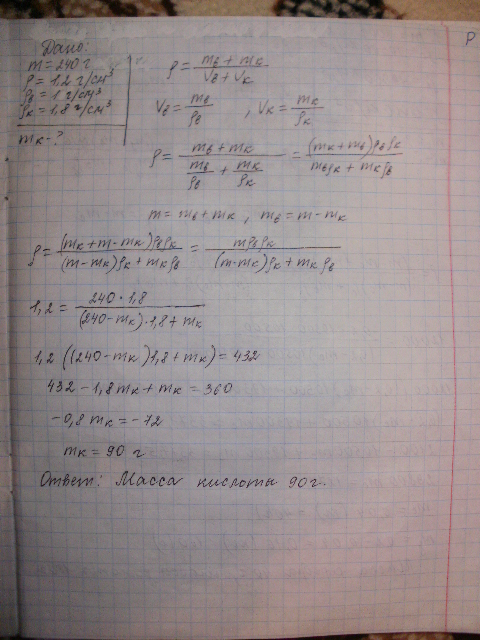 Дано:
m = 240 г
ρ = 1,2 г/см³
ρв = 1 г/см³
ρк = 1,8 г/см³
mк - ?
ρ = (mв + mк)/(Vв + Vк)
Vв = mв/ρв , Vк = mк/ρк
ρ = (mв + mк)/(mв/ρв + mк/ρк) = (mк + mв)ρвρк/(mвρк + mкρв)
m = mв + mк , mв = m - mк
ρ = (mк + m - mк)ρвρк/((m - mк)ρк + mкρв) = mρвρк/((m - mк)ρк + mкρв)
1,2 = 240 · 1,8/((240 - mк) · 1,8 + mк)
1,2 ((240 - mк)1,8 + mк) = 432
432 - 1,8mк + mк = 360
-0,8 mк = -72
mк = 90 г
Ответ: Масса кислоты 90 г.
Р